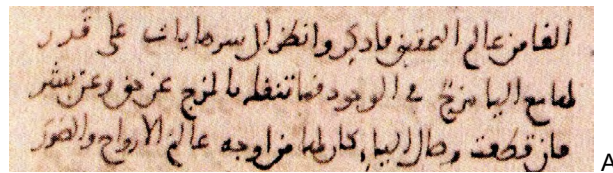 الفا من عالم التحقيق فادكر وانظر الى سرها يات على قدر
لها مع اليا مزج في الوجود فما تنفك بالمزج عن حق وعن بشر
فان قطعت وصال الياء كان لها من اوجه عالم الارواح والصور
A